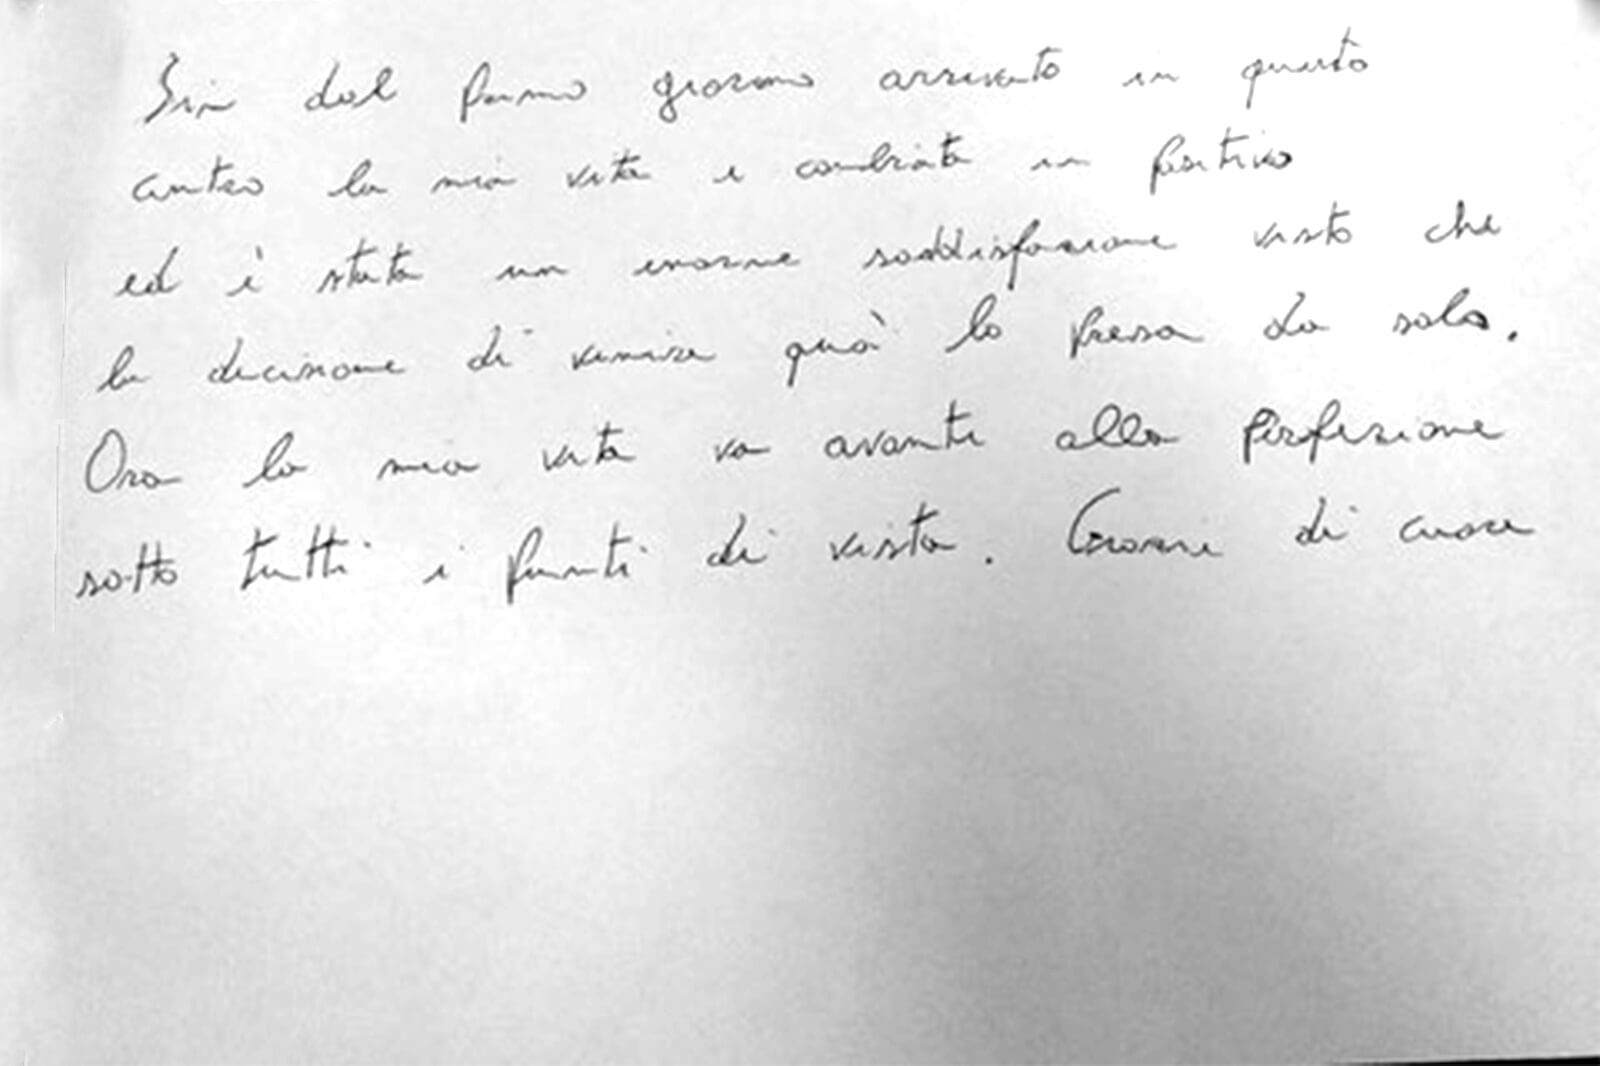 Sin dal primo giorno arrivato in questo
centro la mia vita è cambiata in positivo
ed è stata un enorme soddisfazione visto che
la decisione di venire quà lo presa da solo.
Ora la mia vita va avanti alla perfezione
sotto tutti i punti di vista. Grazie di cuore